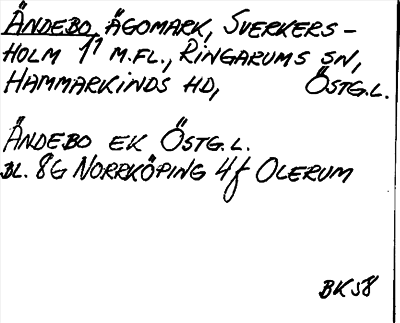 ÄNDEBO, ÄGOMARK, SVERKERS-
HOLM 1¹ M.FL., RINGARUMS SN,
HAMMARKINDS HD, ÖSTG.L.
ÄNDEBO EK ÖSTG.L.
BL. 8G NORRKÖPING 4f OLERUM
BK58